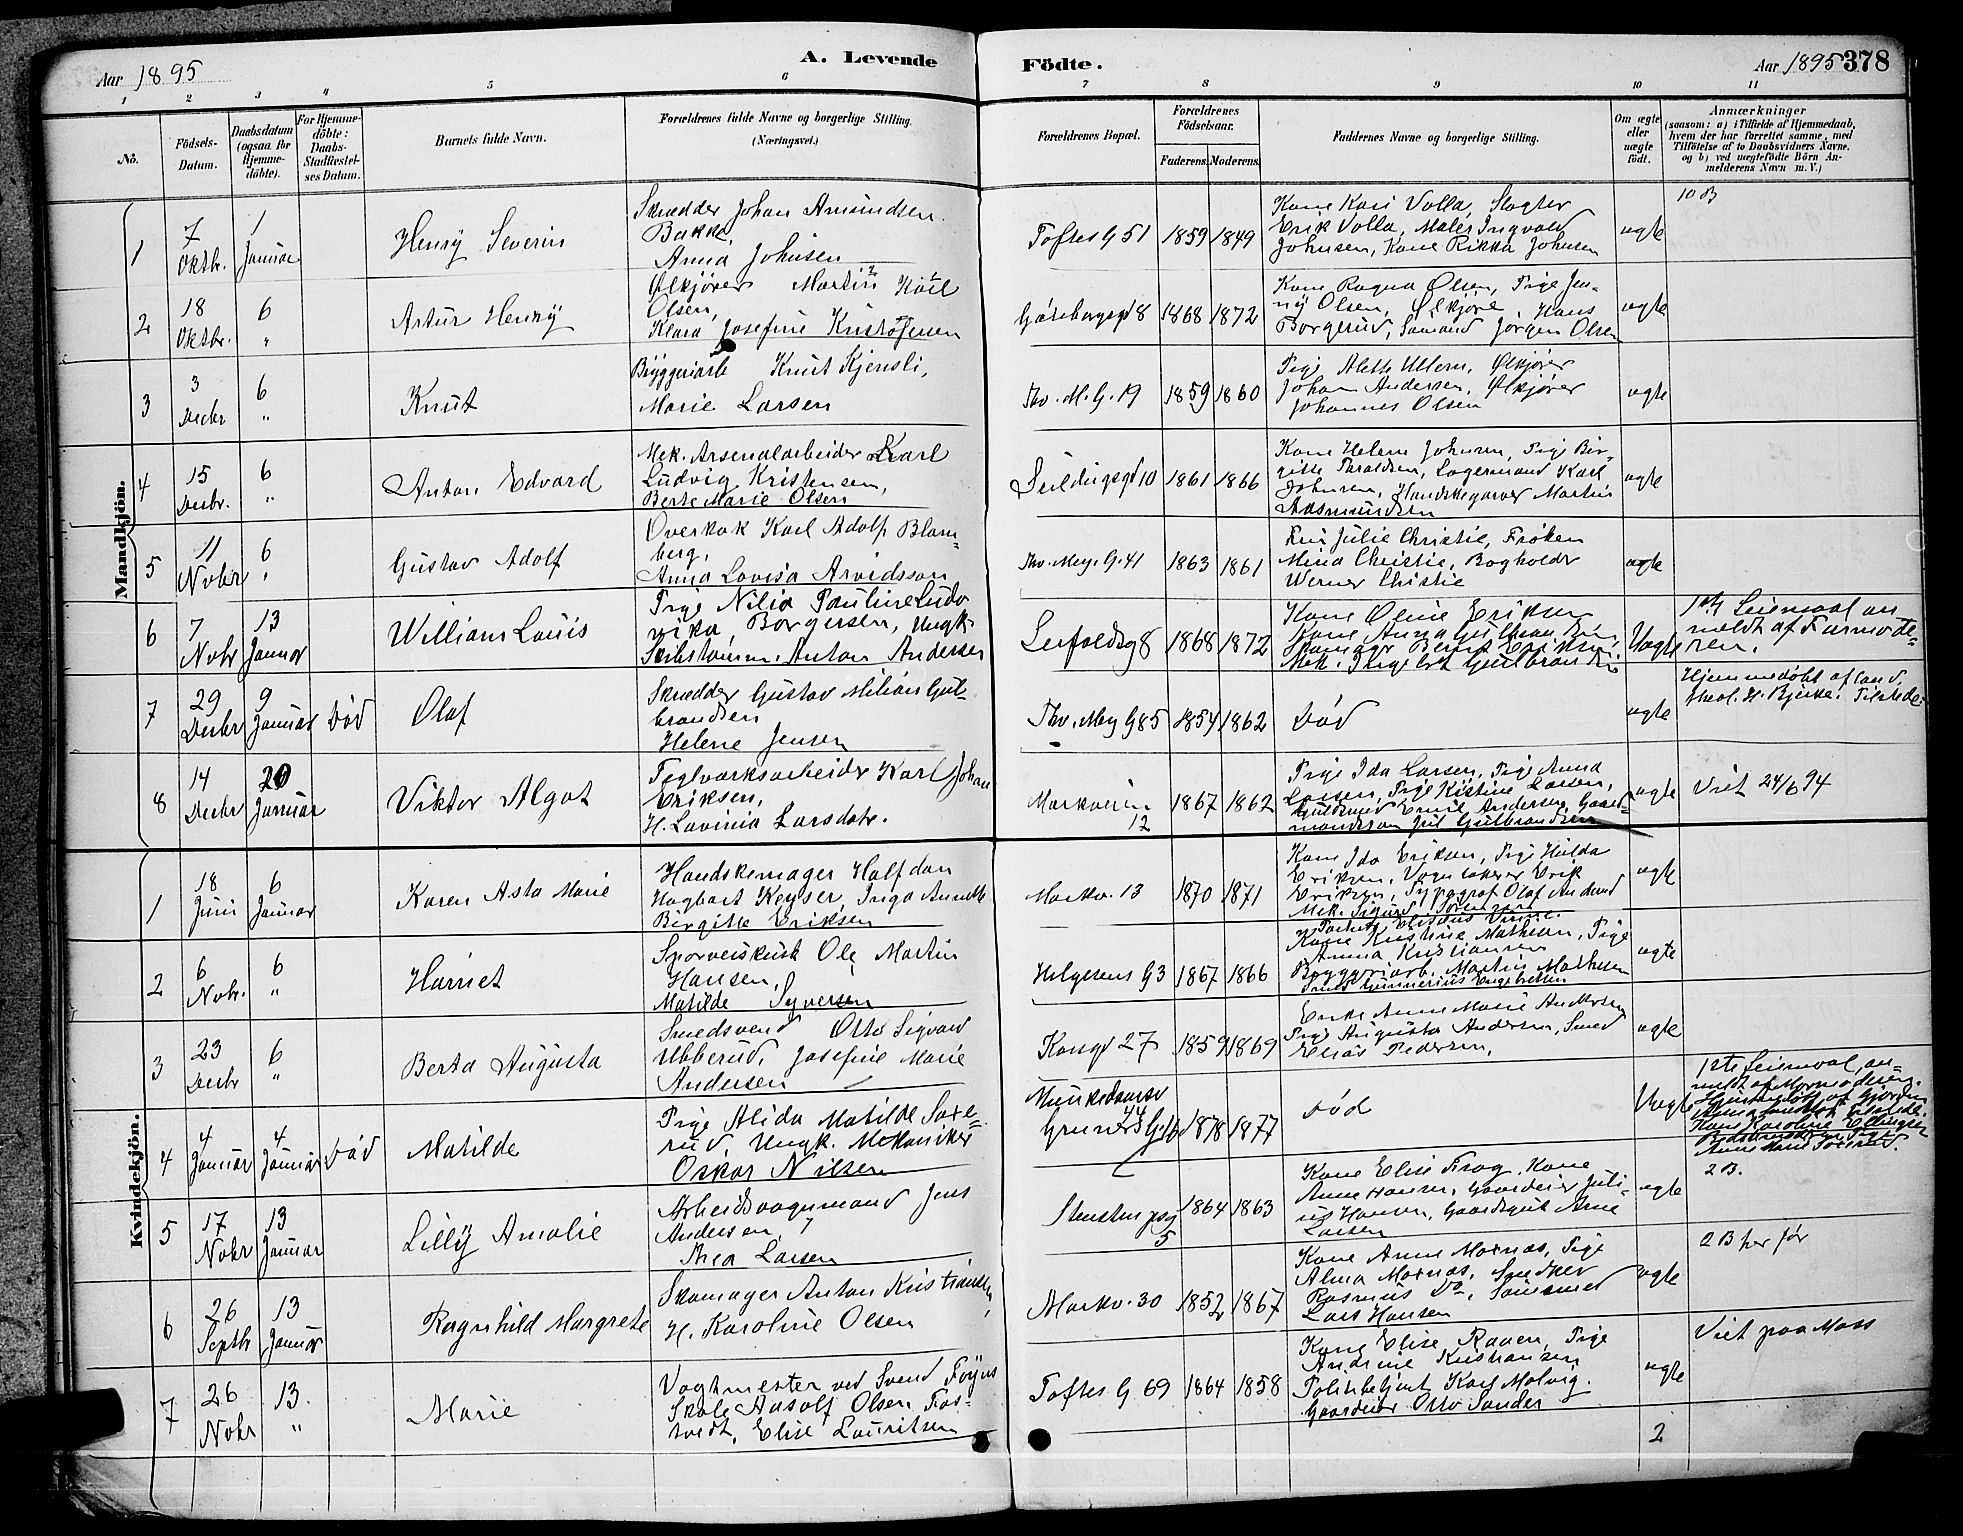 Aar 1895
A. Levende
Födte.
Aar 1895 378
1 2 3 4 5 6 7 8 9 10 11
No.
Födsels-Datum.
Daabsdatum (ogsaa for Hjemme-döbte).
For Hjemme-döbte: Daabs-Stadfæstel-ses Datum.
Barnets fulde Navn.
Forældrenes fulde Navne og borgerlige Stilling.
(Næringsvei.)
Forældrenes Bopæl.
Forældrenes Födselsaar.
Faderens. Moderens.
Faddernes Navne og borgerlige Stilling.
Om ægte eller uægte födt.
Anmærkninger
(saasom: a) i Tilfælde af Hjemmedaab,
hvem der har forrettet samme, med
Tilföielse af to Daabsvidners Navne,
og b) ved uægtefödte Börn An-
melderens Navn m. V.)
Mandkjön.
1
7 Oktbr.
1 Januar
Henry Severin
Skrædder Johan Amundsen
Bakke,
Anna Johnsen
Toftes G 51
1859 1849
Kone Kari Volla, Slagter
Erik Volla, Maler Ingvald
Johnsen, Kone Rikka Johnsen
ægte
10 B
2
18 Oktbr.
6 "
Artur Henry
Ølkjører Martin Karl
Olsen,
Klara Josefine Kristofersen
Göteborggd 8
1868 1872
Kone Ragna Olsen, Pige Jen-
ny Olsen, Ølkjöre Hans
Borgerud, Sömand Jörgen Olsen
ægte
3
3 Decbr
6 "
Knut
Bryggeriarb Knut Kjensli,
Marie Larsen
Thv. M. G. 19
1859 1860
Pige Alette Ullern, Ølkjører
Johan Andersen, Ølkjører
Johannes Olsen
ægte
4
15 Decbr.
6 "
Anton Edvard
Mek. Arsenalarbeider Karl
Ludvig Kristensen,
Berte Marie Olsen
Seildugsgd 10
1861 1866
Kone Helene Johnsen, Pige Bir-
gitte Thraldsen, Lagermand Karl
Johnsen, Handskegarver Martin
Aasmundsen
ægte
5
11 Novbr
6 "
Gustav Adolf
Överkok Karl Adolf Blom-
berg,
Anna Lovisa Arvidsson
Thv. Mey. G. 41
1863 1861
Fru Julie Christie, Frøken
Mina Christie, Bogholder
Werner Christie
ægte
6
7 Novbr
13 Januar
William Louis
Pige Nilia Pauline Ludv
vika Borgersen, Ungk.
Anton Andersen
8
1868 1872
Kone Oline Eriksen
Kone Anna
Skomager Bernt Eriksen,
Mek. Ingebret Gulbrandsen
Uægte
1ste Leiermaal an-
meldt af Farmode-
ren.
7
29 Decbr
9 Januar
Död
Olaf
Skrædder Gustav Milian Gul-
brandsen
Helene Jensen
Thv. Mey G 85
1854 1862
Död
ægte
Hjemmedöbt af cand.
theol. H. Bjerke. Tilstede:
8
14 Decbr
20 Januar
Viktor Algot
Teglværksarbeider Karl Johan
Eriksen,
H. Lavinia Larsdatr.
Markveien
12
1867 1862
Pige Ida Larsen, Pige Anna
Larsen, Pige Kristine Larsen,
Guldsmed Emil Andersen, Gaard-
mandssön Jul Gulbrandsen
ægte
Viet 24/6 94
Kvindekjön.
1
18 Juni
6 Januar
Karen Asta Marie
Handskemager Halfdan
Hagbart Keyser, Inga Annette
Birgitte Eriksen
Markv. 13
1870 1871
Kone Ida Eriksen, Pige Hulda
Eriksen, Vognlakerer Erik
Eriksen, Typograf Olaf
Mek. Sigurd
ægte
2
6 Novbr.
6 "
Harriet
Sporveiskusk Ole Martin
Hansen,
Matilde Syversen
Helgesens G 3
1867 1866
Kone Kristine Mathisen, Pige
Anna Kristiansen
Bryggeriarb. Martin Mathisen
Smed Gunnerius Engebretsen
ægte
3
23 Decbr
6 "
Berta Augusta
Smedsvend Otto Sigvard
Ubberud, Josefine Marie
Andersen
Kongd 27
1859 1869
Enke Anne Marie Andersen
Pige Augusta Andersen, Smed
Elias Pedersen.
ægte
4
4 Januar
4 Januar
Död
Matilde
Pige Alida Matilde Saxe-
rud, Ungk. Mekaniker
Oskar Nilsen
Munkedamsv
44
1878 1877
Död
Uægte
1ste Leiermaal, an-
meldt af Mormoderen.
Hjemmedöbt af Gjordm
Kone Karoline Ellingsen
5
17 Novbr
13 Januar
Lilly Amalie
Arbeidsvognmand Jens
Andersen,
Thea Larsen
Stenstrupsg
5
1864 1863
Kone Elise Krog, Kone
Anne Hansen, Gaardeier Juli-
us Hansen, Gaardsgut Arne
Larsen
ægte
2 B.
6
26 Septbr
13 Januar
Ragnhild Margrete
Skomager Anton Kristiansen,
H. Karoline Olsen
Markv. 30
1852 1867
Kone Anne Moxnæs, Pige
Alma Moxnæs, Snedker
Rasmus Do,
Lars Hansen
ægte
2 B her før
7
26 Novbr
13. "
Marie
Vagtmester ved Svend Foyns
Skole Adsolf Olsen Fos-
tvedt, Elise Lauritsen
Toftes G 69
1864 1858
Kone Elise Raaen, Pige
Andrine Kristiansen
Politibetjent Karl Molvig.
Gaardeier Otto Sander
ægte
Viet paa Moss
2